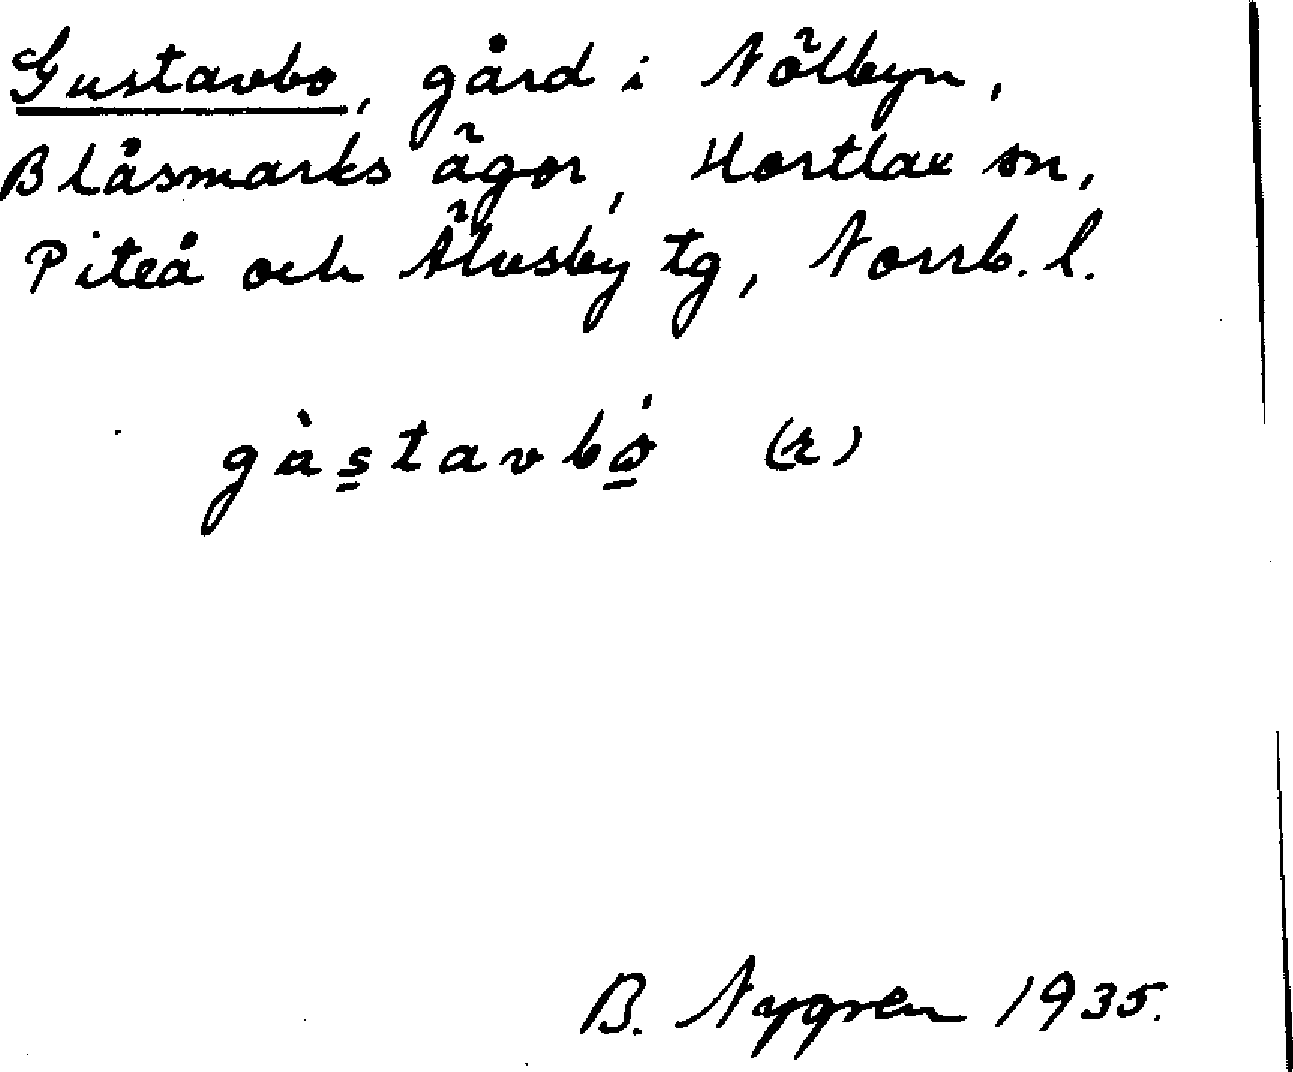 Gustavbo, gård i Nölbyn,
Blåsmarks ägor, Hortlax sn,
Piteå och Älvsby tg, Norrb. l.
gàstavbó (r)
B. Nygren 1935.